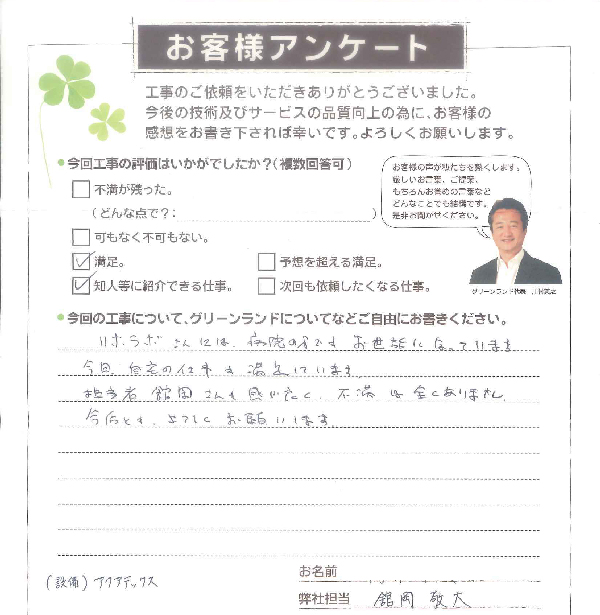 お客様アンケート
工事のご依頼をいただきありがとうございました。
今後の技術及びサービスの品質向上の為に、お客様の
感想をお書き下されば幸いです。よろしくお願いします。
今回工事の評価はいかがでしたか?(複数回答可)
不満が残った。
(どんな点で?: )
可もなく不可もない。
満足。
予想を超える満足。
知人等に紹介できる仕事。
次回も依頼したくなる仕事。
お客様の声が私たちを熱くします。
厳しいお言葉、ご提案、
もちろんお誉めの言葉など
どんなことでも結構です。
是非お聞かせください。
グリーンランド代表
今回の工事について、グリーンランドについてなどご自由にお書きください。
リボラボさんには、病院の方でお世話になっています
今回、自宅の仕事も満足しています
担当者 館岡さんも感が良く、不満は全くありません。
今后とも、よろしくお願いします
お名前
(設備)アクアデックス
弊社担当 館岡 敬大